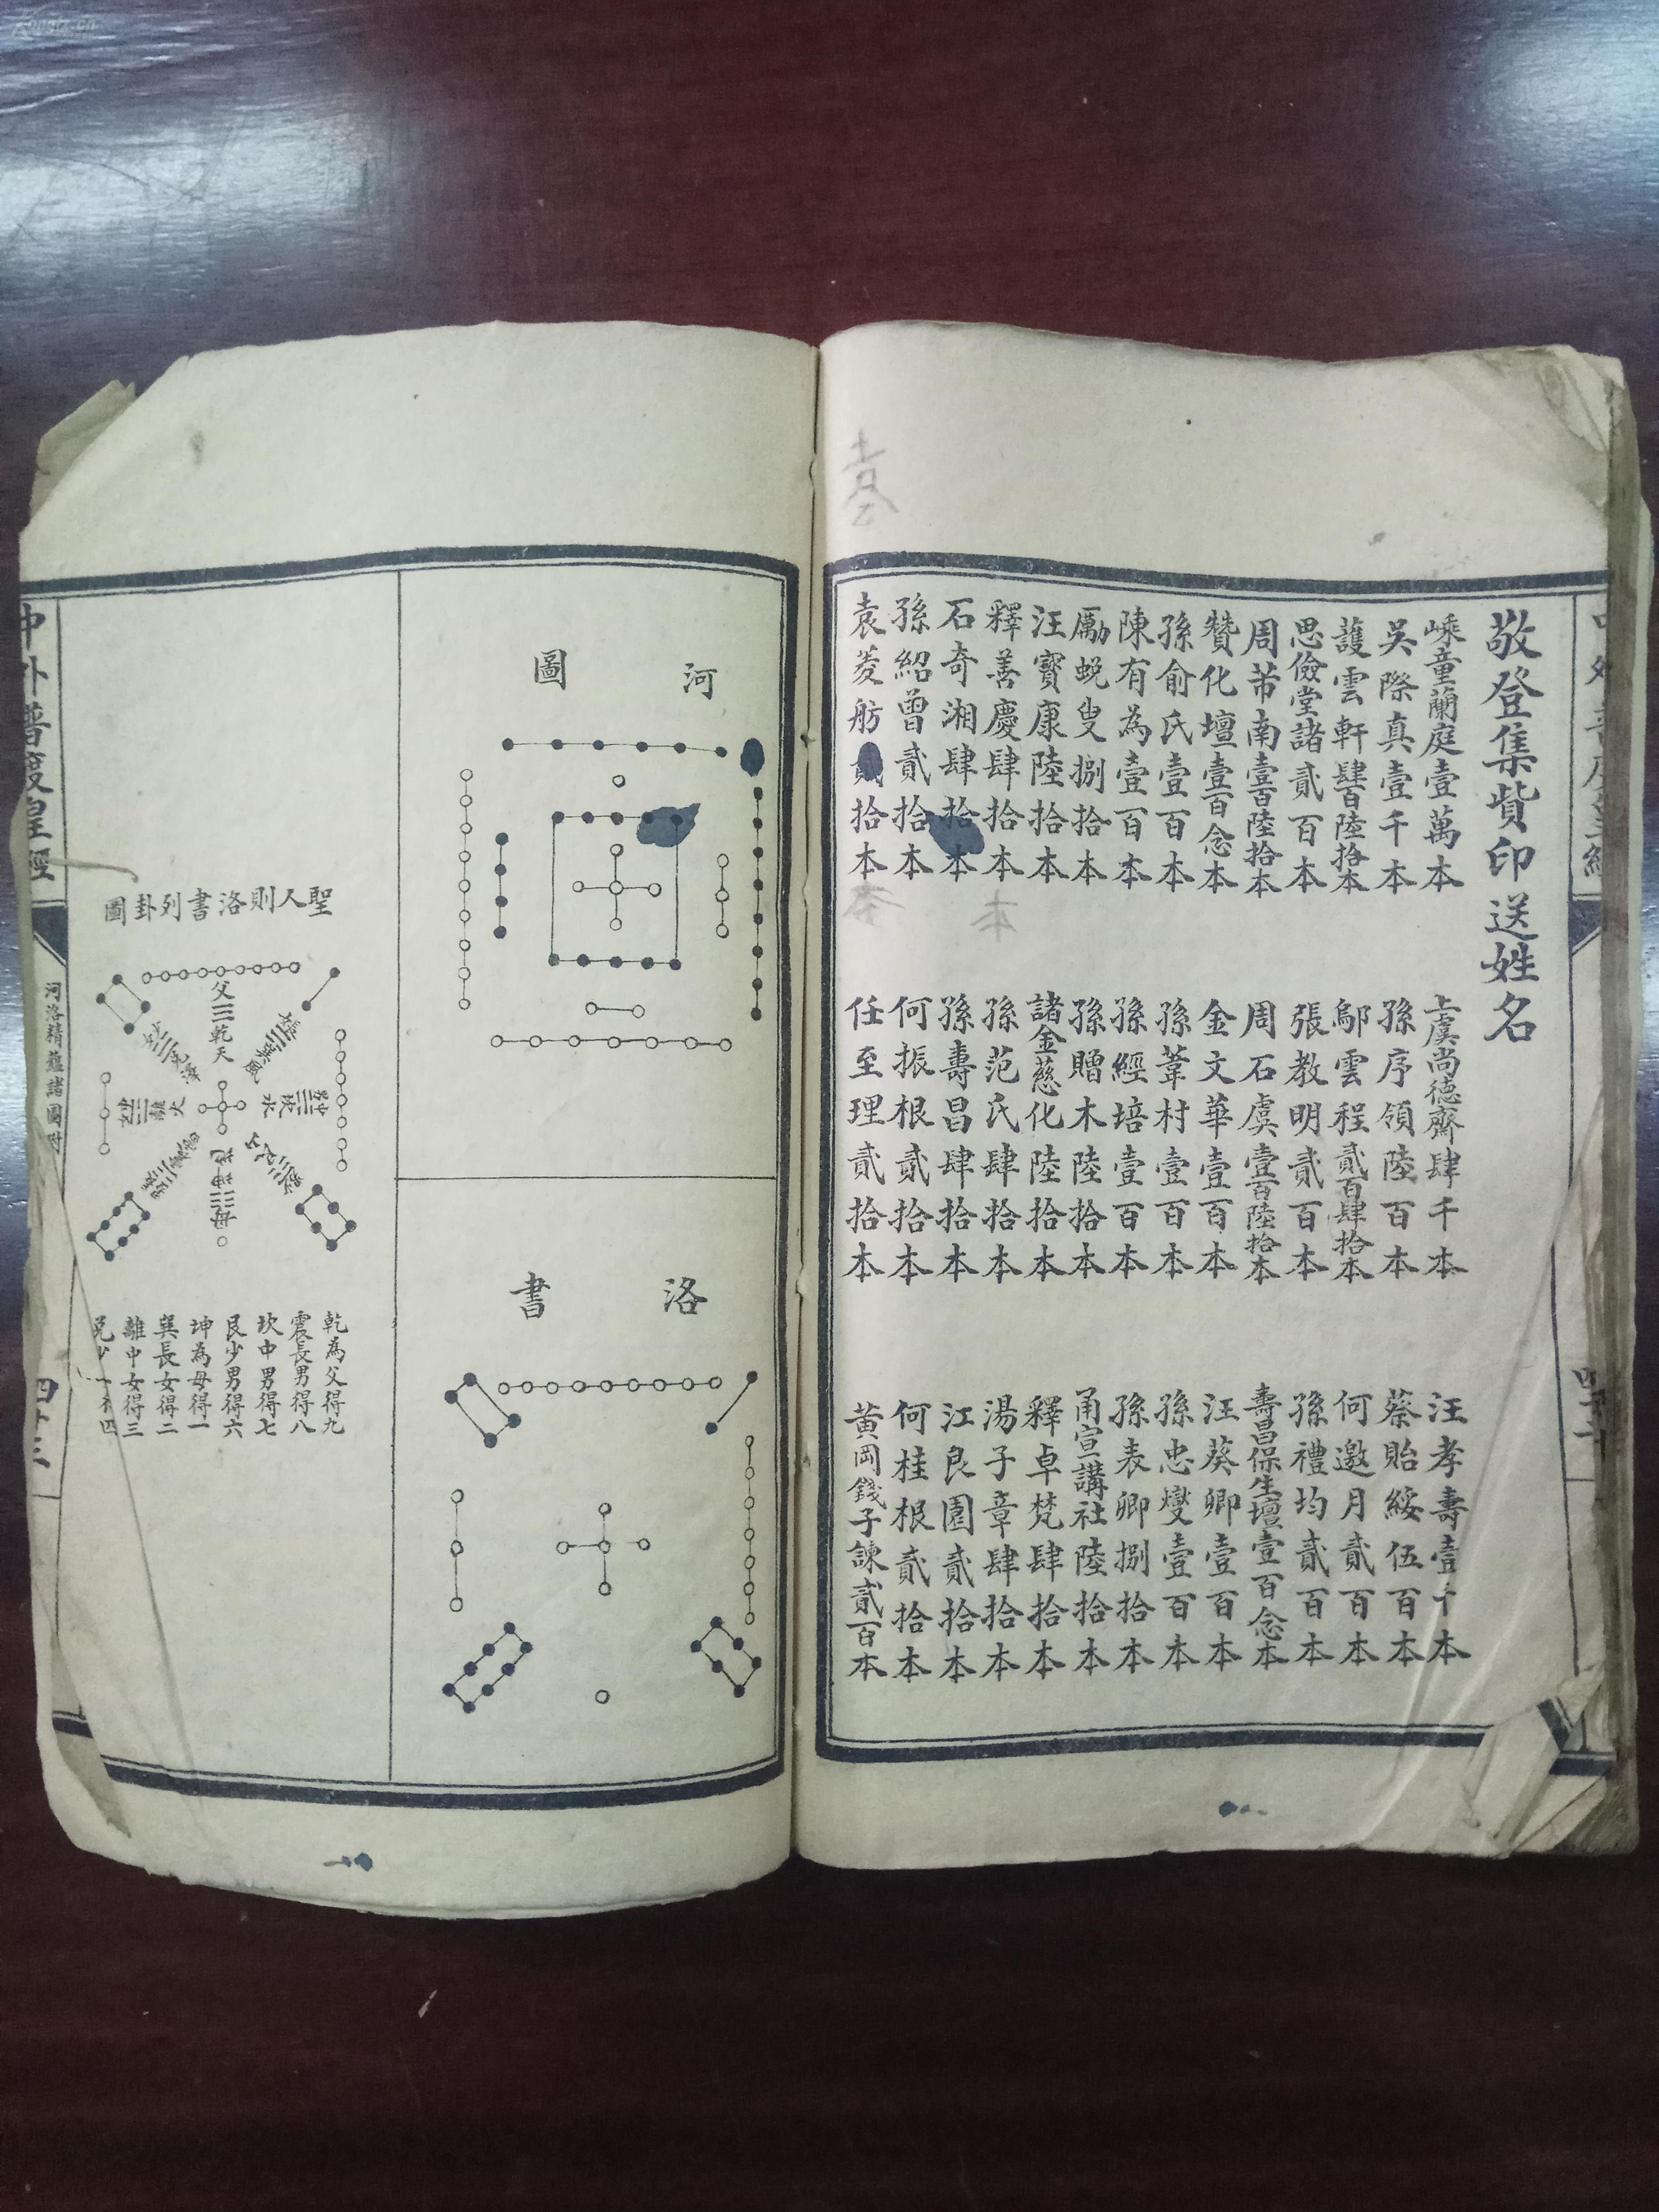 敬登集貲印送姓名
嵊童蘭庭壹萬本
上虞尚德齋肆千本
汪孝壽壹千本
吳際真壹千本
孫序領陸百本
蔡貽綏伍百本
護雲軒肆百陸拾本
鄔雲程貳百肆拾本
何邀月貳百本
思儉堂諸貳百本
張教明貳百本
孫禮均貳百本
周芾南壹百陸拾本
周石虞壹百陸拾本
壽昌保生壇壹百念本
贊化壇壹百念本
金文華壹百本
汪葵卿壹百本
孫俞氏壹百本
孫葦村壹百本
孫忠燮壹百本
陳有為壹百本
孫經培壹百本
孫表卿捌拾本
勵蛻叟捌拾本
孫贈木陸拾本
甬宣講社陸拾本
汪寶康陸拾本
諸金慈化陸拾本
釋卓梵肆拾本
釋善慶肆拾本
孫范氏肆拾本
湯子章肆拾本
石奇湘肆拾本
孫壽昌肆拾本
江良園貳拾本
孫紹曾貳拾本
何振根貳拾本
何桂根貳拾本
袁菱舫貳拾本
任至理貳拾本
黃岡錢子諫貳百本
河圖
洛書
聖人則洛書列卦圖
父乾天
坎水
離火
母坤地
乾為父得九
震長男得八
坎中男得七
艮少男得六
坤為母得一
巽長女得二
離中女得三
中外普度皇經
河洛精蘊諸圖附
四十三